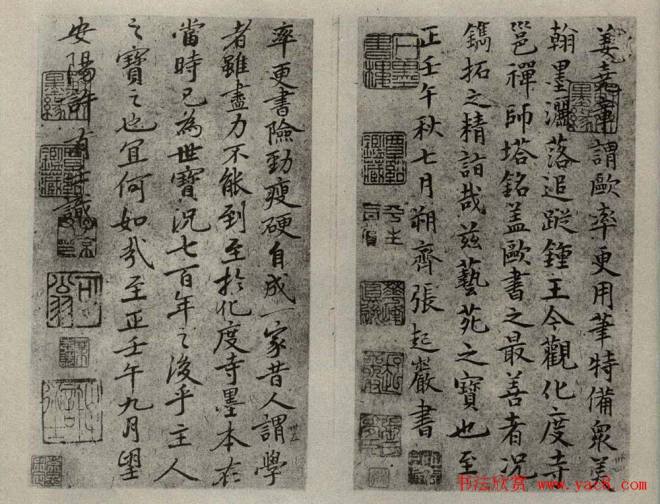 姜堯章謂歐率更用筆特備眾美
翰墨灑落追蹤鍾王今觀化度寺
邕禪師塔銘蓋歐書之最善者況
鐫拓之精詣哉茲藝苑之寶也至
正壬午秋七月朔齊張起巖書
率更書險勁瘦硬自成一家昔人謂學
者雖盡力不能到至於化度寺墨本在
當時已為世寶況七百年之後乎主人
之寶之也宜何如哉至正壬午九月望
安陽許有壬識
书法欣赏 www.yac8.com